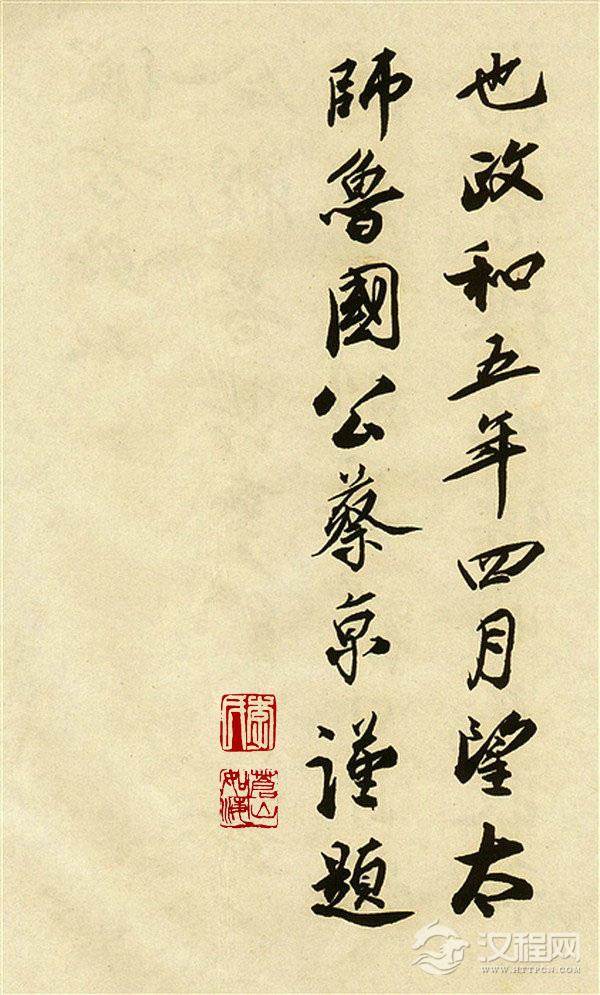 也政和五年四月望太
師魯國公蔡京謹題
蒼山如海
汉程网
WWW.HTTPCN.COM